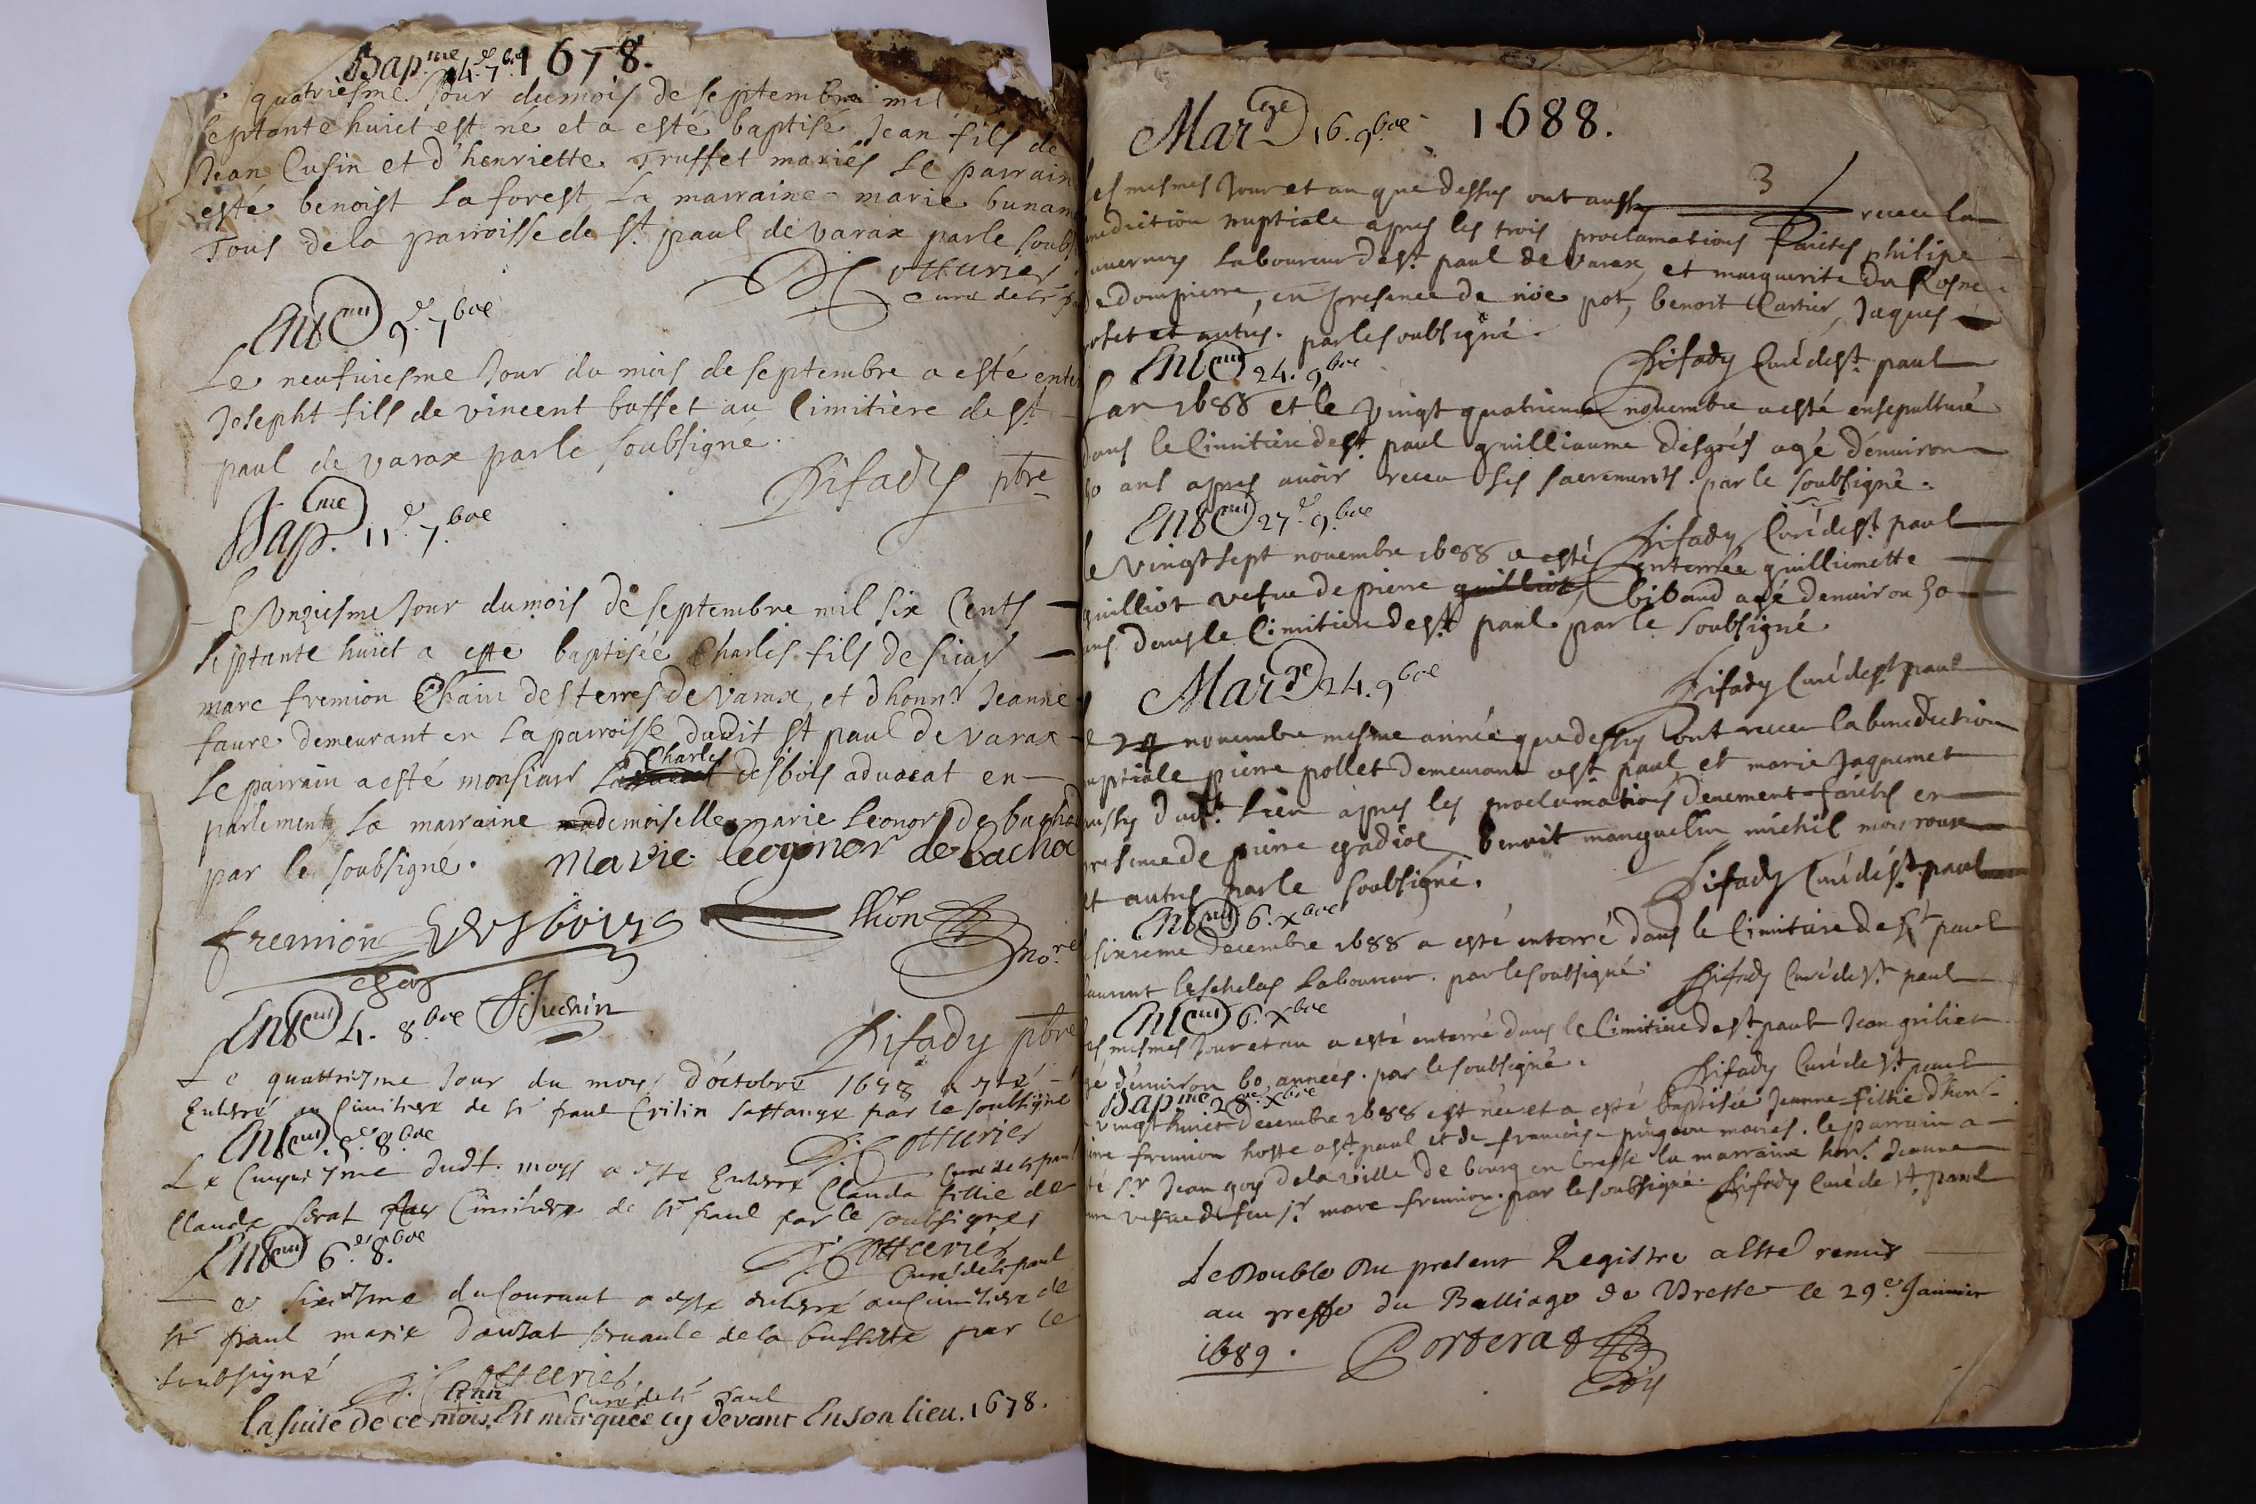 Bap.me 4.e 7.bre 1678.
quatriesme Jour dumois de septembre mil
septante huict est né et a esté baptisé Jean fils de
Jean Cusin et d'henriette Truffet mariés Le parrain
esté benoist Laforest La marraine marie bunan
Tous dela parroisse de st. paul de varax parle soub
Cotturier
Curé de st
Ent 9.e 7.bre
Le neufuiesme Jour du mois de septembre a esté ente
Josepht fils de vincent buffet au Cimitiere de st.
paul de varax parle soubsigné.
Difady pbre
Bap.me 11.e 7.bre
Le Onziesme Jour dumois de septembre mil six Cents
septante huict a esté baptisée Charles fils de sieur
marc fremion des terres de Varax, et d'honn. Jeanne
faure demeurant en La parroisse dudit st paul de Varax
Charles
Le parrain a esté monsieur desbois aduocat en
parlement La marraine mademoiselle marie Leonor de
par le soubsigné. Marie leoynor de bacho
fremion Desbois
no.re
Ent 4. 8.bre
Difady pbre
Le quattriesme Jour du mois d'octobre 1678 a esté
Enterré au Cimitiere de st paul par le soubsigné
Ent 5.e 8.bre Cotturier
Curé de st paul
Le Cinquiesme dudt. moys a este Enterré Clauda fillie de
Claude Cimitiere de st paul par le soubsigné
Ent 6.e 8.bre Cotturier
Curé de st paul
Le sixiesme du Courant a esté enterré au Cimitiere de
st paul marie seruante de la par le
soubsigné Cotturier
Curé de st Paul
la suite de ce mois. Est marquée cy devant En son lieu. 1678.
Mar.ge 16. 9.bre 1688.
3
es mesmes Jour et an que dessus ont aussy receu la
nediction nuptiale apres les trois proclamations faictes philipe
Laboureur de st. paul de Varax, et marguerite Du Rosne
de dompierre, en presence de noe pot, benoit Cartier, Jaques
et autres. par le soubsigné.
Ent 24. 9.bre Difady Curé de st. paul
Lan 1688 et le Vingt quatrieme nouembre a esté ensepulturé
dans le Cimitiere de st. paul guilliaume desgrés agé d'enuiron
ans apres auoir receu ses sacrements. par le soubsigné.
Ent 27.e 9.bre Difady Curé de st. paul
le Vingt sept nouembre 1688 a esté enterrée guilliemette
guilliot vefue de pierre guilliot bibaud agé denuiron 30
ans. dans le Cimitiere de st paul par le soubsigné
Mar.ge 24. 9.bre Difady Curé de st paul
24 nouembre mesme année que dessus ont receu la benediction
uptiale pierre pollet demeurant a st. paul et marie Jaquemet
aussy dudt. Lieu apres les proclamations deuement faictes en
presence de pierre benoit manguelin michel
et autres par le soubsigné. Difady Curé de st. paul
Ent 6. Xbre
sixieme decembre 1688 a esté enterré dans le Cimitiere de st paul
Laurent Laboureur. par le soubsigné. Difady Curé de st. paul
Ent 6. Xbre
es mesmes Jour et an a esté enterré dans le Cimitiere de st paul Jean grilier
gé d'enuiron 60 années. par le soubsigné. Difady Curé de st. paul
Bap.me 28.me Xbre
vingt huict decembre 1688 est née et a esté baptisée Jeanne fillie d'hon
fremion hoste a st. paul et de francoise pingeon mariés. le parrain a
té Sr. Jean goy de la ville de bourg en bresse la marraine hon. Jeanne
vefue de feu sr. marc fremion. par le soubsigné. Difady Curé de st. paul
Le Double Du present Registre a Esté remis
au greffe du Balliage de Bresse le 29.e Januier
1689. Porterat